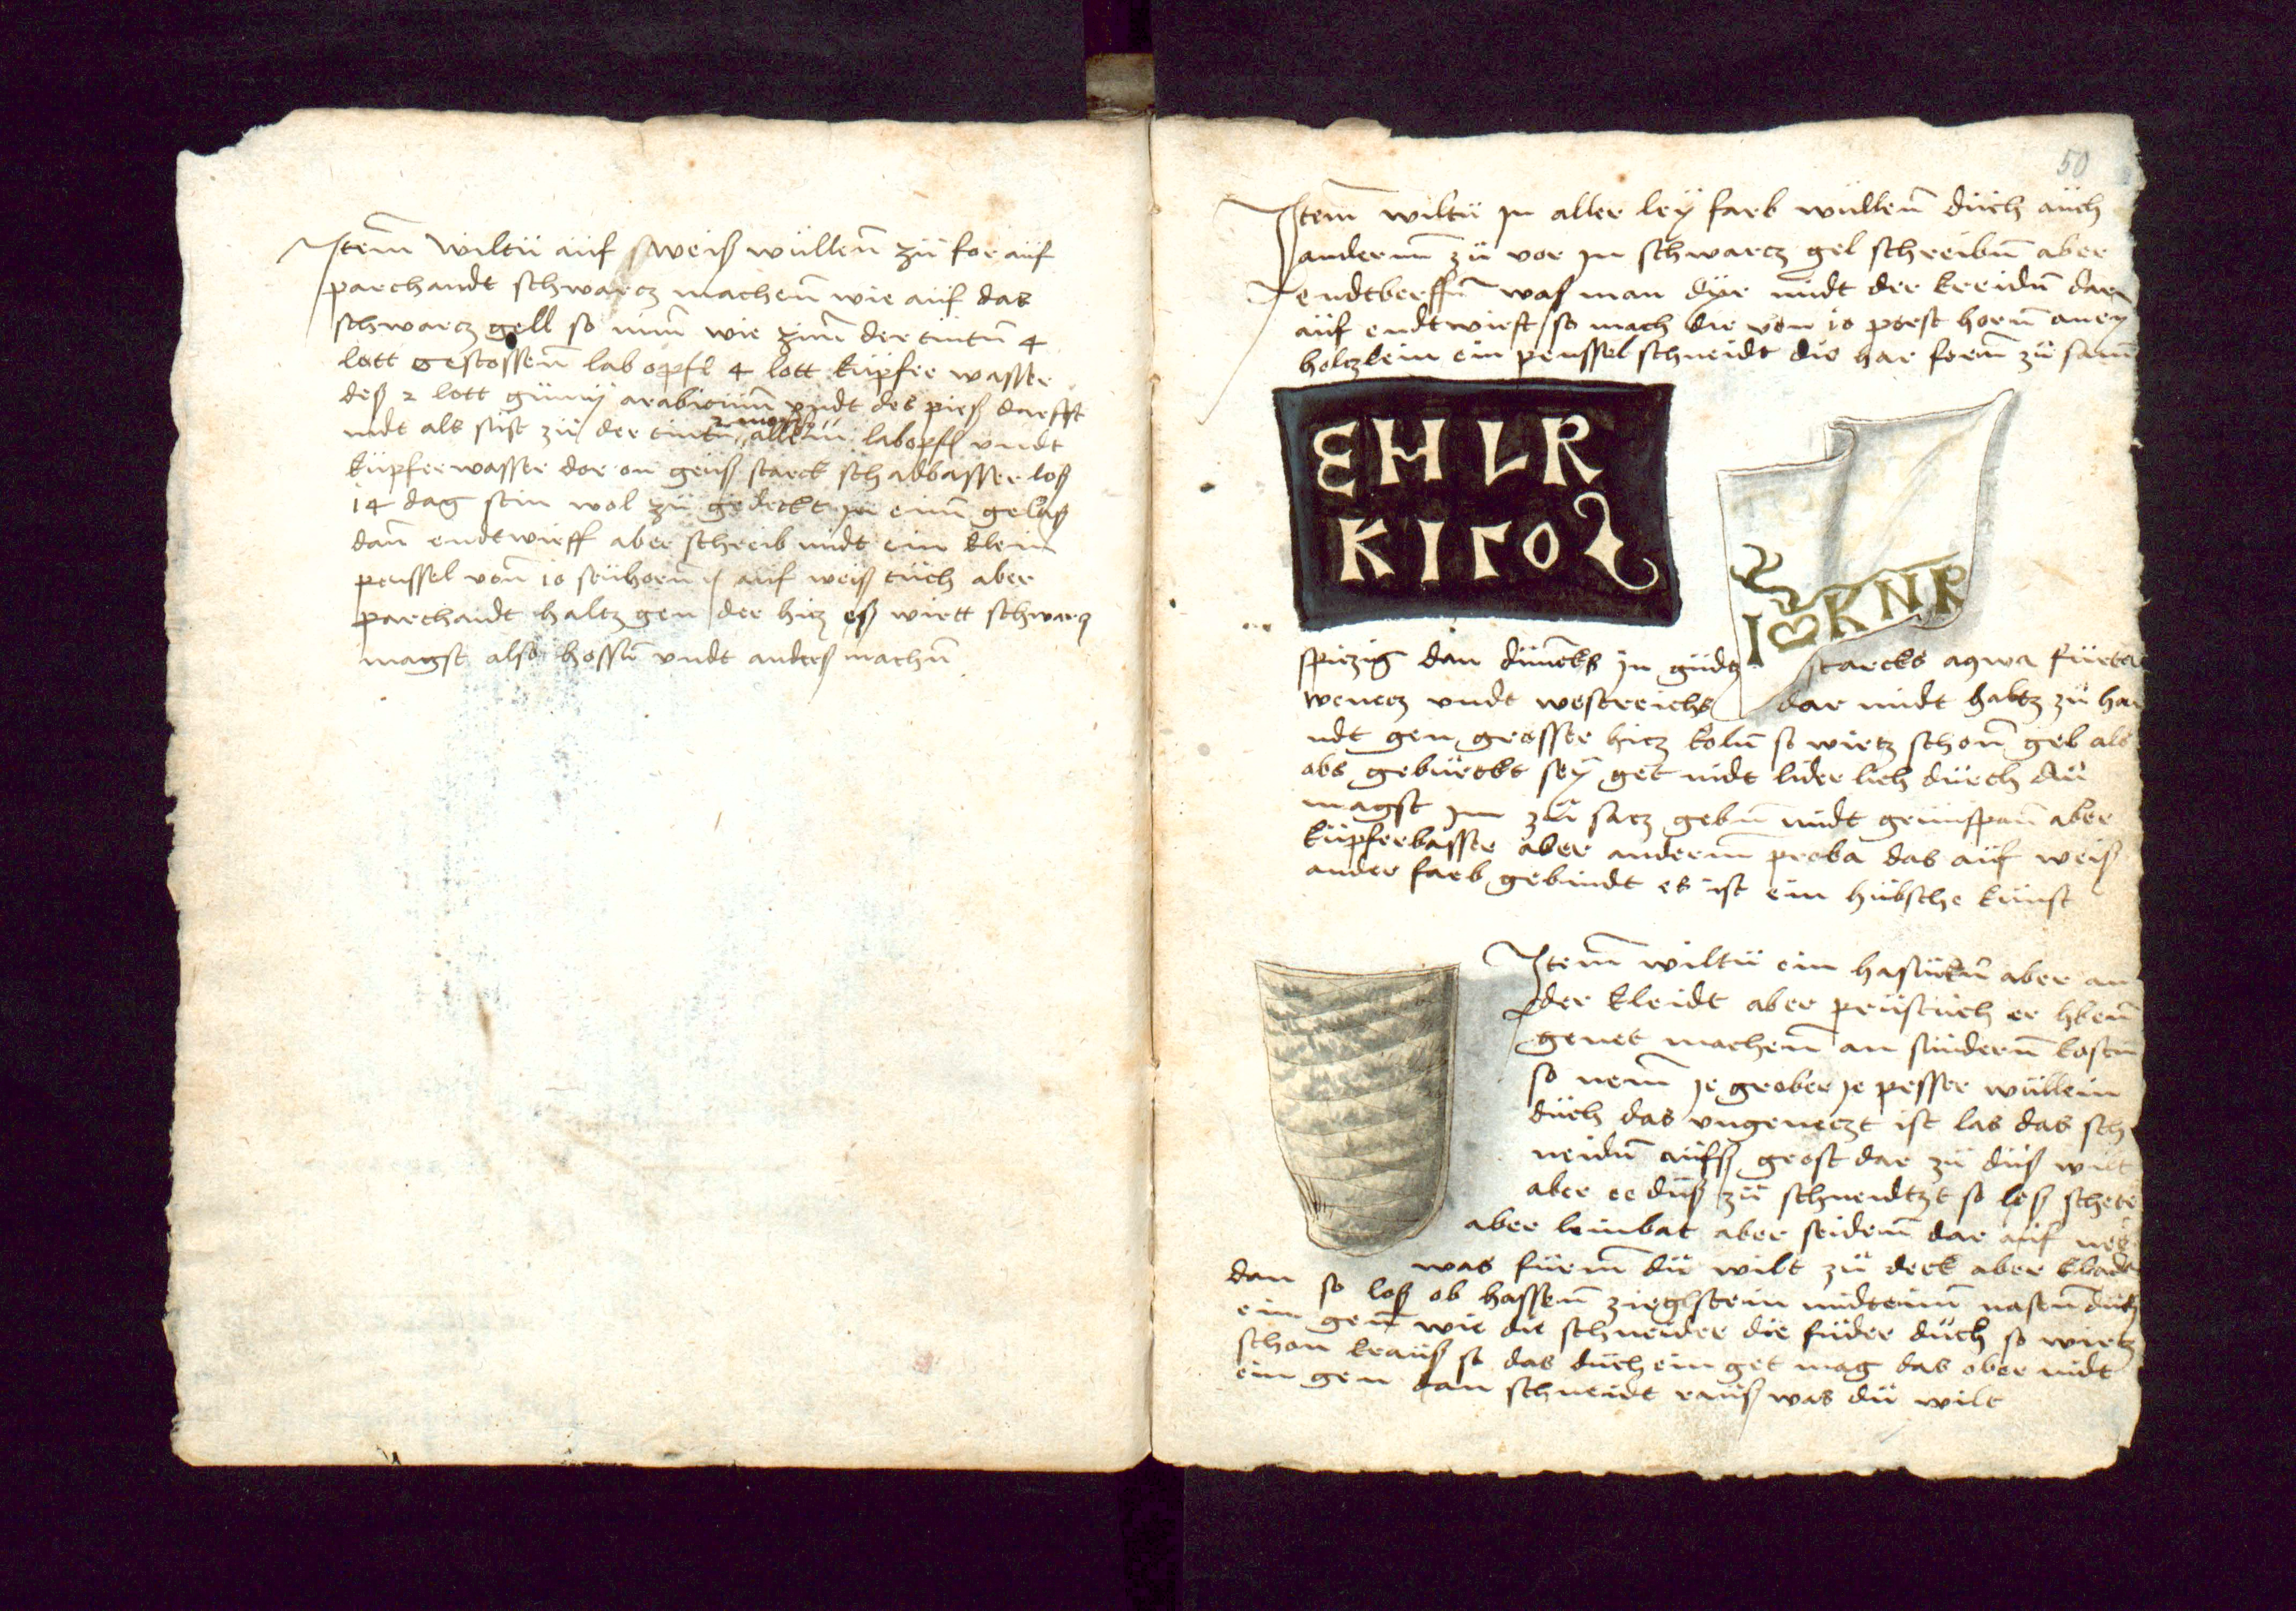 Item wiltü aüf sweiß wüllenn zü for aüf
parchandt schwarcz machenn wie aüf das
schwarcz gell so nim wie zum der tintn 4
lott gestossenn labopfl 4 lott küpfer wasser
deß 2 lott gümy arabicum vndt des pieß darfft
nidt als fist zü der tintn allein labopfl vndt
küpferwasser dor on geuß starck schadbasser loß
14 dag stin wol zü gedeckt in eim gelaß
dan endtwirff aber schreib midt ein klein
penssel von 10 seühorn auf weiß tuch aber
parchaidt haltz gen der hicz eß wirtt schwarz
magst also hossn vndt anders machn
50
Item wiltü in aller ley farb wüllenn düch aüch
andernn zü vor in schwarcz gel schreibn aber
endtberffn waß man dyr midt der kreidn dar
aüf endtwirft so mach die von 10 porst horn an ey
holczlein ein penssel schneidt die har forn zü sam
EHLR
KIΓO
I KNR
spiczig dan dunncks in gudz starcks aqwa fürta
wencz vndt westreichs dar midt habtz zü ha
ndt gen grosser hicz koln so wirtz schonn geb als
obs gebürckt sey get nidt liderlich dürch dü
magst im zü sacz gebn midt grünspan aber
küpferbasser aber andernn proba das aüf weiß
ander farb gebindt es ist ein hübsche künst
Item wiltü ein hasückn aber an
der kleidt aber prüstüch er hben
genet machenn an sündernn kostn
so nem je grober je pesser wüllein
düch das vngeneczt ist las das sch
neidn aüfß grost dar zü düß wilt
aber ee düß zü schneidtzt so loß schete
aber leinbat aber seidenn dar auf nee
was fürm dü wilt zü deck aber kladt
dan so loß ob hassenn zieglstein midteim nasenn düch
ein gen wie die schneider die füder düch so wirtz
schon krauß so das düch ein get mag das ober nidt
ein gen dan schneidt rauß was dü wilt